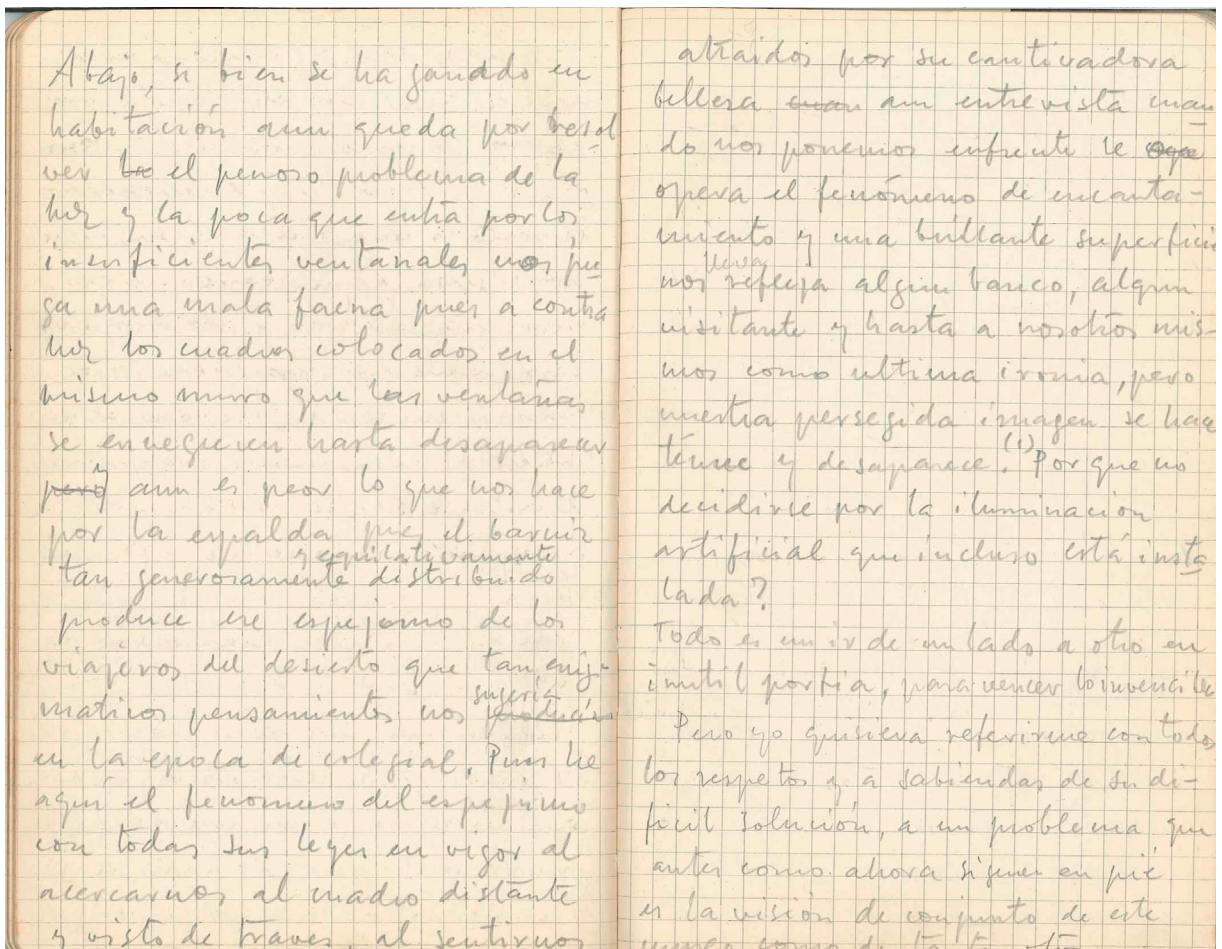 Abajo, si bien se ha ganado en
habitación aun queda por resol
ver el penoso problema de la
luz y la poca que entra por los
insuficientes ventanales nos jue
ga una mala faena pues a contra
luz los cuadros colocados en el
mismo muro que las ventanas
se ennegrecen hasta desaparecer
pero y aun es peor lo que nos hace
por la espalda pues el barniz
y equitativamente
tan generosamente distribuido
produce ese espejismo de los
viajeros del desierto que tan enig-
sugeria
maticos pensamientos nos producía
en la epoca de colegial. Pues he
aquí el fenomeno del espejismo
con todas sus leyes en vigor al
acercarnos al cuadro distante
y visto de traves, al sentirnos
atraidos por su cautivadora
belleza cuan aun entrevista cuan
do nos ponemos enfrente se ope
opera el fenómeno de encanta-
miento y una brillante superficie
lleva
nos refleja algun banco, algun
visitante y hasta a nosotros mis-
mos como ultima ironia, pero
nuestra persegida imagen se hace
tenue y desaparece. (1) Por que no
decidirse por la iluminación
artificial que incluso está insta
lada?
Todo es un ir de un lado a otro en
inutil porfia, para vencer lo invencible
Pero yo quisiera referirme con todos
los respetos y a sabiendas de su di-
ficil solución, a un problema que
antes como ahora siguen en pié
es la visión de conjunto de este